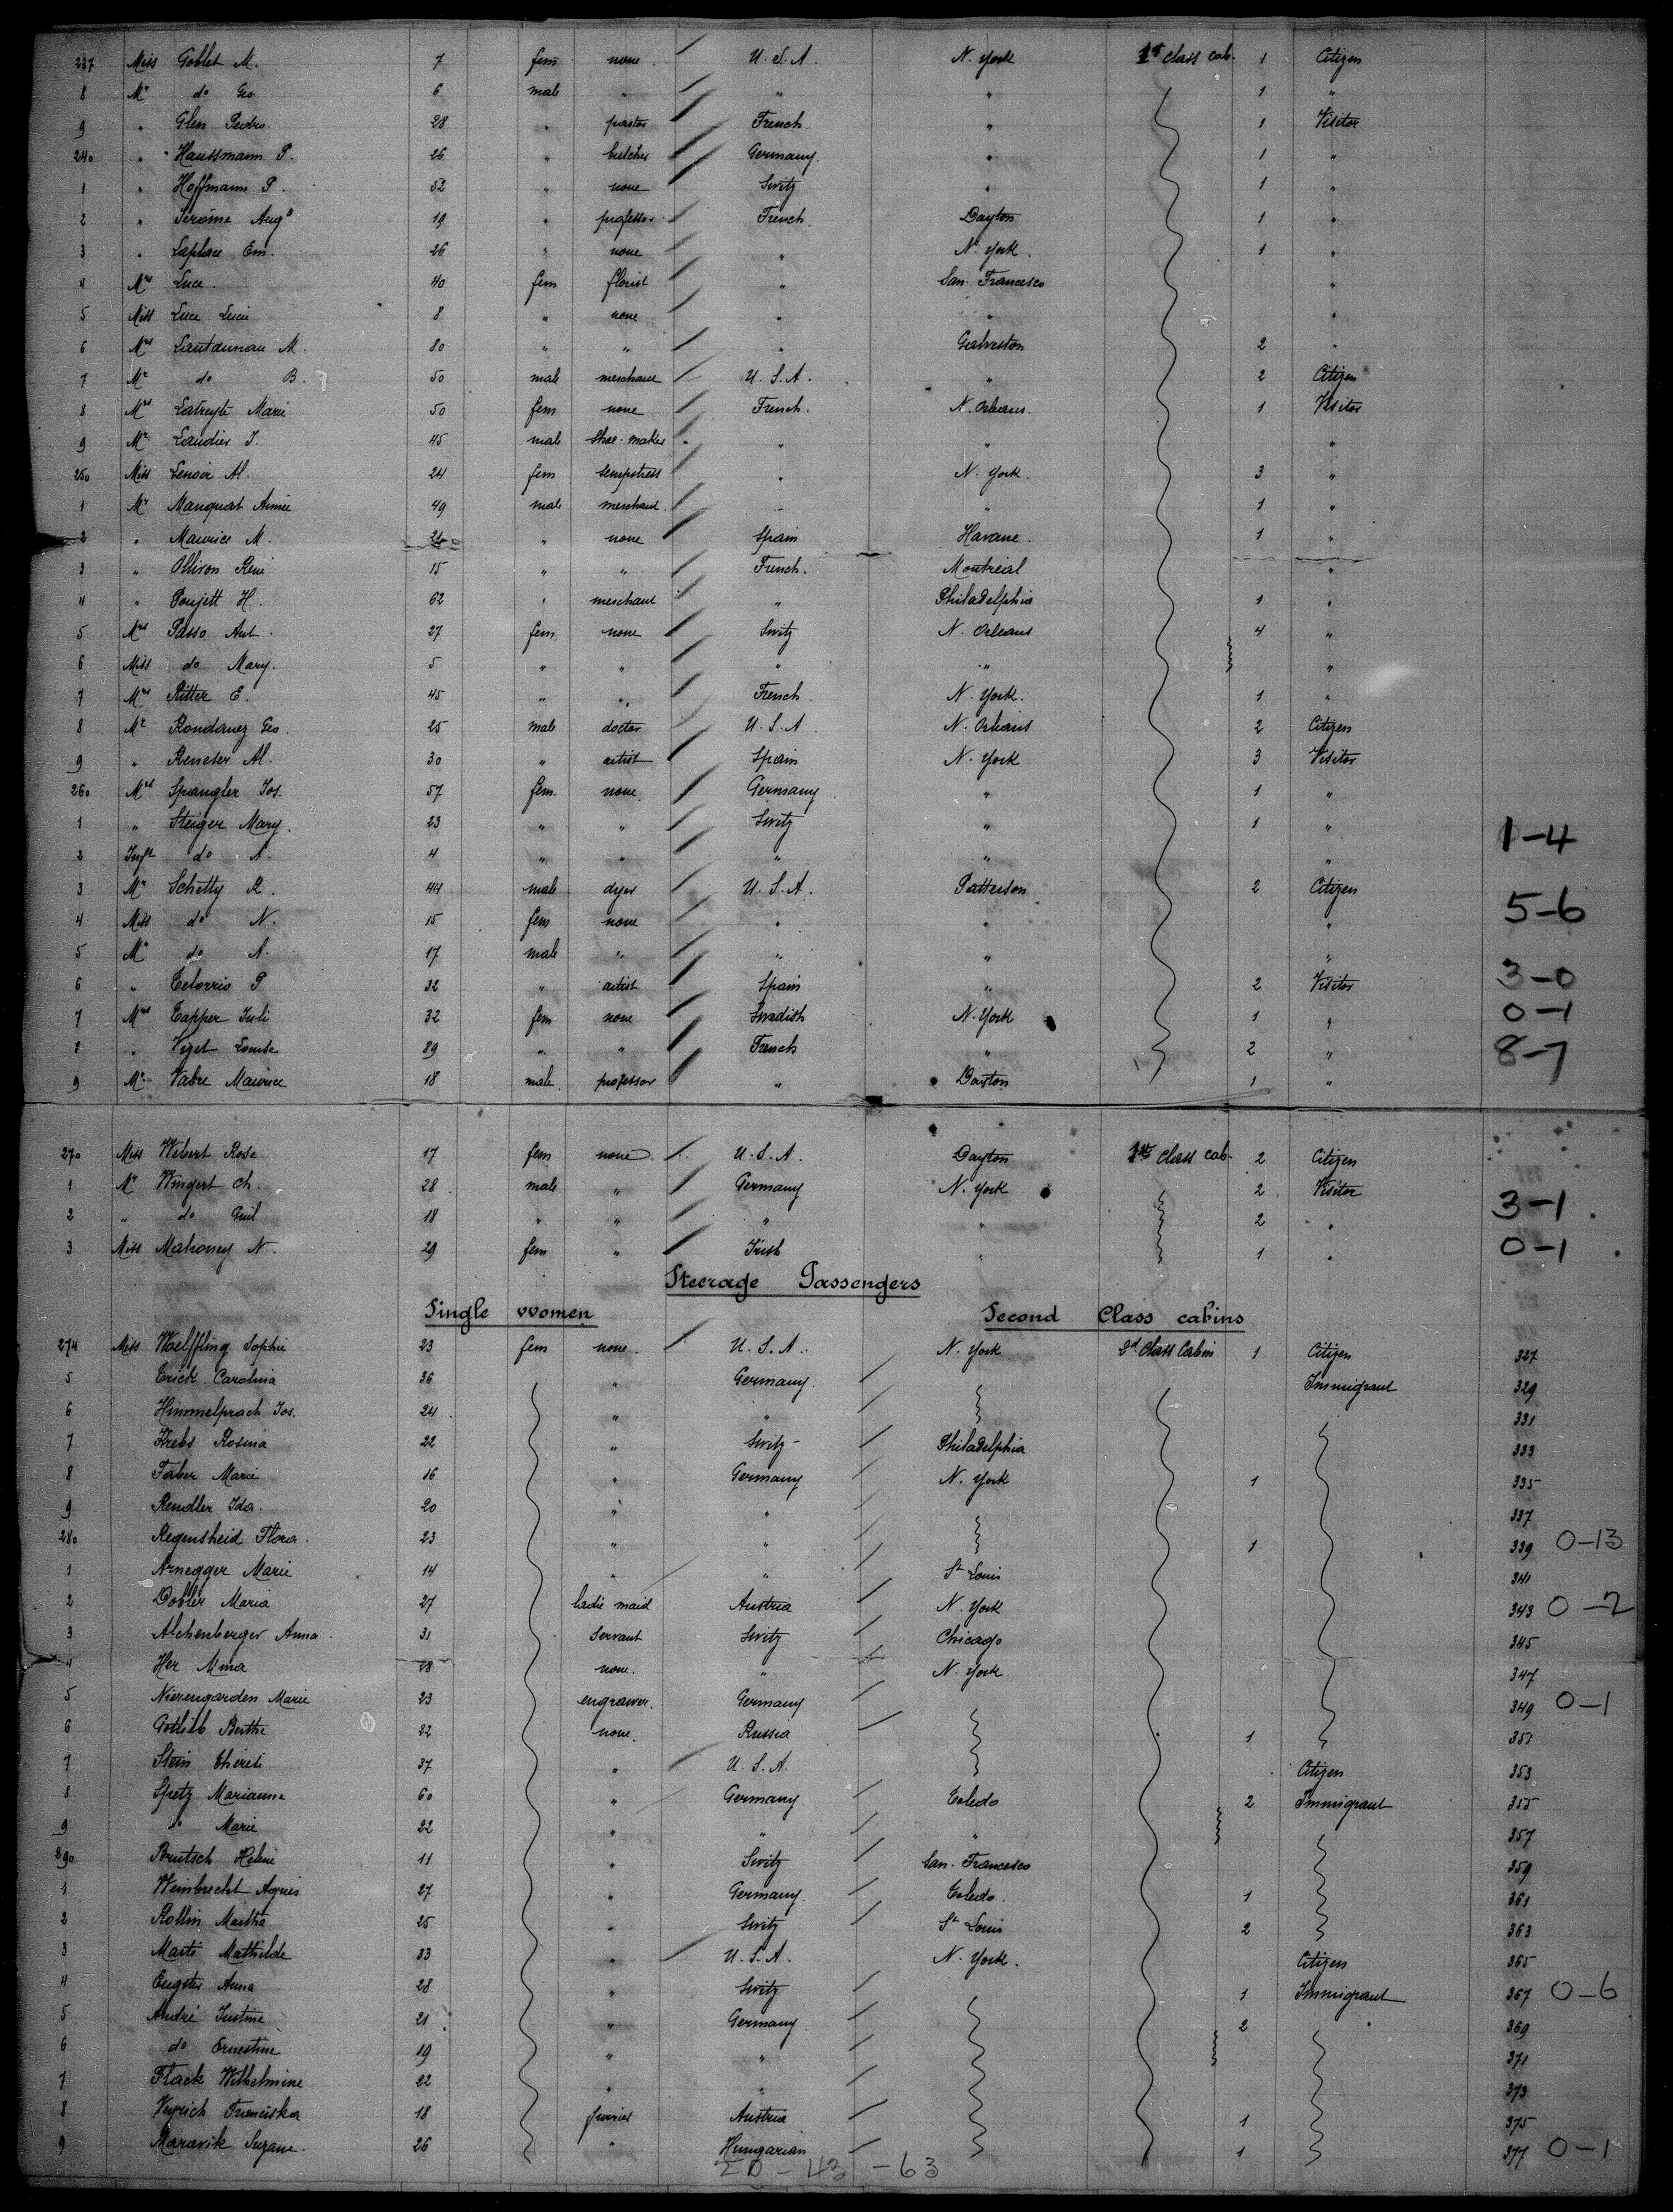 237 Miss Goblet M. 7 fem none U.S.A. N. York 1st class cab. 1 Citizen
8 Mr do Geo 6 male " " " 1 "
9 " Glen Pedro 28 " pastor French " 1 Visitor
240 " Haussmann P. 26 " butcher Germany " 1 "
1 " Hoffmann P. 52 " none Switz " 1 "
2 " Jerôme Augs 19 " professor French Dayton 1 "
3 " Laplace Em. 26 " none " N. York 1 "
4 Mrs Luce 40 fem florist " San Francesco "
5 Miss Luce 8 " none " " "
6 Mrs M. 80 " " " Galveston 2 "
7 Mr do B. 50 male merchant U.S.A. " 2 Citizen
8 Mrs Marie 50 fem none French. N. Orleans. 1 Visitor
9 Mr Laudier J. 45 male shoe-maker " " "
250 Miss Lenoir Al. 24 fem sempstress " N. York. 3 "
1 Mr Manquat 49 male merchant " " 1 "
2 " Maurice M. " none Spain Havane. 1 "
3 " René 15 " " French. Montreal "
4 " H. 62 " merchant " Philadelphia 1 "
5 Mrs Passo Ant. 27 fem. none Switz N. Orleans 4 "
6 Miss do Mary. 5 " " " " "
7 Mrs Ritter E. 45 " " French N. York. 1 "
8 Mr Geo. 25 male doctor U.S.A N. Orleans 2 Citizen
9 " Al. 30 " artist Spain N. York 3 Visitor
260 Mrs Spangler Jos. 57 fem none Germany " 1 "
1 " Steiger Mary. 23 " " Switz " 1 "
1-4
2 Inft do A. 4 " " " " "
3 Mr Schetty R. 44 male dyer U.S.A. Patterson 2 Citizen
5-6
4 Miss do N. 15 fem none " " "
5 Mr do A. 17 male " " " "
6 " P 32 " artist Spain " 2 Visitor 3-0
7 Mrs Tapper Juli 32 fem none Swedish N. York 1 " 0-1
8 " Louise 89 " " French " 2 " 8-7
9 Mr Vabre Maurice 18 male professor " Dayton 1 "
270 Miss Wibert Rose 17 fem none U.S.A. Dayton 1st class cab. 2 Citizen
1 Mr Wingert Ch. 28 male " Germany N. York 2 Visitor
3-1
2 " do Guil 18 " " " " 2 "
3 Miss Mahoney N. 29 fem " Irish " 1 " 0-1
Steerage Passengers
Single women Second Class cabins
274 Miss Woelffling Sophie 23 fem none. U.S.A. N. York 2d Class Cabin 1 Citizen 327
5 Erick Carolina 36 " Germany Immigrant 329
6 Himmelsprach Jos. 24 " " 331
7 Krebs Rosina 22 " Switz- Philadelphia 333
8 Faber Marie 16 " Germany N. York 1 335
9 Rendler Ida. 20 " " 337
280 Regensheid Flora. 23 " " 1 339 0-13
1 Arnegger Marie 14 " " St Louis 341
2 Dobler Maria 27 ladie maid Austria N. York 343 0-2
3 Alchenberger Anna 31 Servant Switz Chicago 345
4 Her Mina 18 none. " N. York 347
5 Nierengarden Marie 23 engrawer. Germany 349 0-1
6 Gotlieb Berthe 22 none. Russia 1 351
7 Stein 37 " U.S.A. Citizen 353
8 Spetz Marianne 60 " Germany Toledo 2 Immigrant 355
9 do Marie 22 " " " 357
290 Brutsch Helene 11 " Switz San Francesco 359
1 Weinbrecht Agnes 27 " Germany. Toledo. 1 361
2 Rollin Martha 25 " Switz St Louis 2 363
3 Marti Mathilde 33 " U.S.A. N. York. Citizen 365
4 Engster Anna 28 " Switz 1 Immigrant 367 0-6
5 André Justine 21 " Germany 2 369
6 do Ernestine 19 " " 371
7 Flack Wilhelmine 22 " " 373
8 Franciska 18 Austria 1 375
9 Maravik Suzane. 26 " Hungarian 1 377 0-1
20-43-63